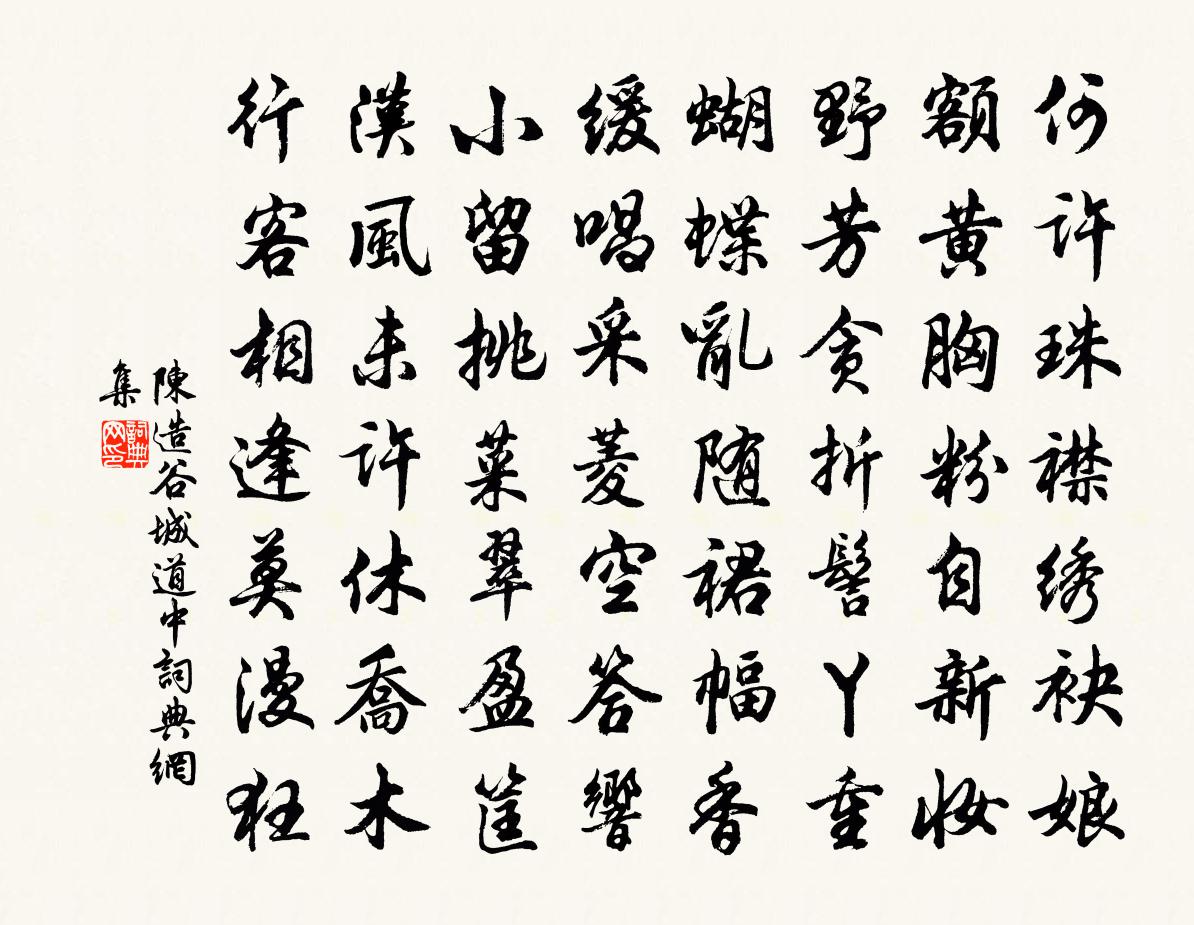 何許珠襟绣袂娘
額黄胸粉自新妝
野芳贪折髻丫重
蝴蝶亂随裙幅香
缓唱采菱空答響
小留挑菜翠盈筐
漢風未許休喬木
行客相逢莫漫狂
陳造谷城道中詞典網
集
詞典
网印